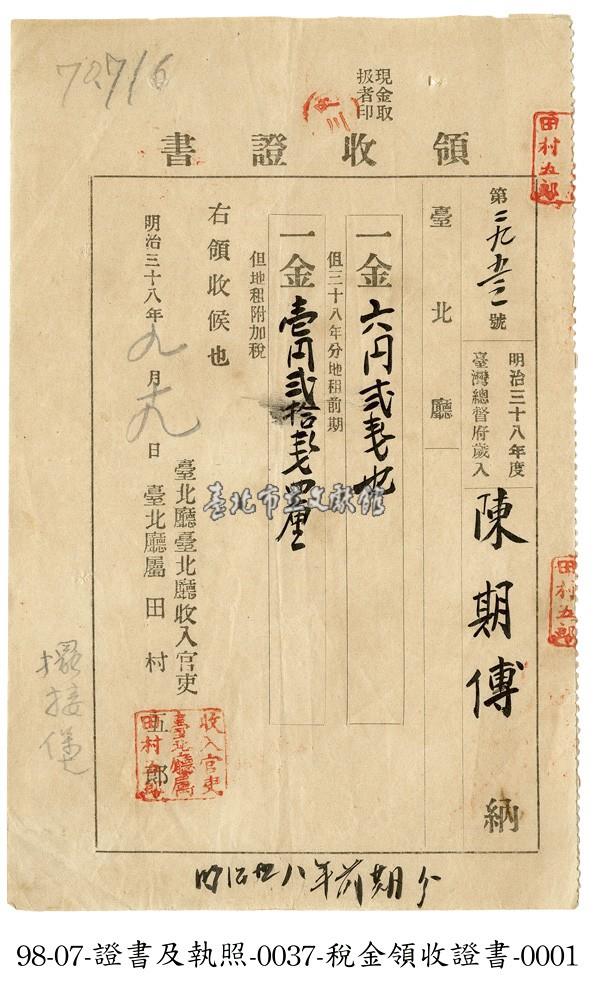 70.7/6
現金取
扱者印
領收證書
第二九五三一號
明治三十八年度
臺灣總督府歲入
陳期傳 納
臺北廳
一金 六円弐毛也
但三十八年分地租前期
一金 壱円弐拾銭四厘
但地租附加稅
右領收候也
明治三十八年九月十九日
臺北廳臺北廳收入官吏
臺北廳屬田村五郎
收入官吏
臺北廳屬
田村五郎
田村五郎
田村五郎
擺接堡
明治卅八年前期分
臺北市立文獻館
98-07-證書及執照-0037-稅金領收證書-0001